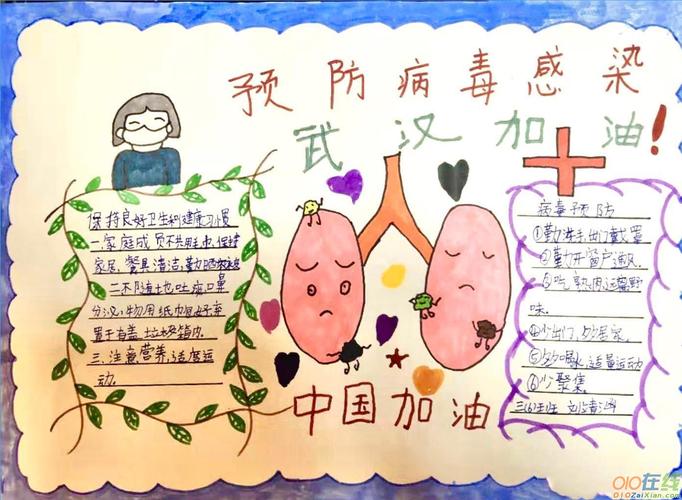 预防病毒感染
武汉加油!
保持良好卫生和健康习惯
一.家庭成员不共用毛巾,保持
家居、餐具清洁,勤晒衣被
二不随地吐痰口鼻
分泌物用纸巾包好弃
置于有盖垃圾箱内
三、注意营养,适度运
动.
病毒预防
①勤洗手,出门戴口罩
②勤开窗户通风
③吃熟肉,远离野
味.
④少出门,多居家.
⑤多喝水,适量运动
⑥少聚集.
三(6)班
中国加油
010在线
010ZaiXian.com